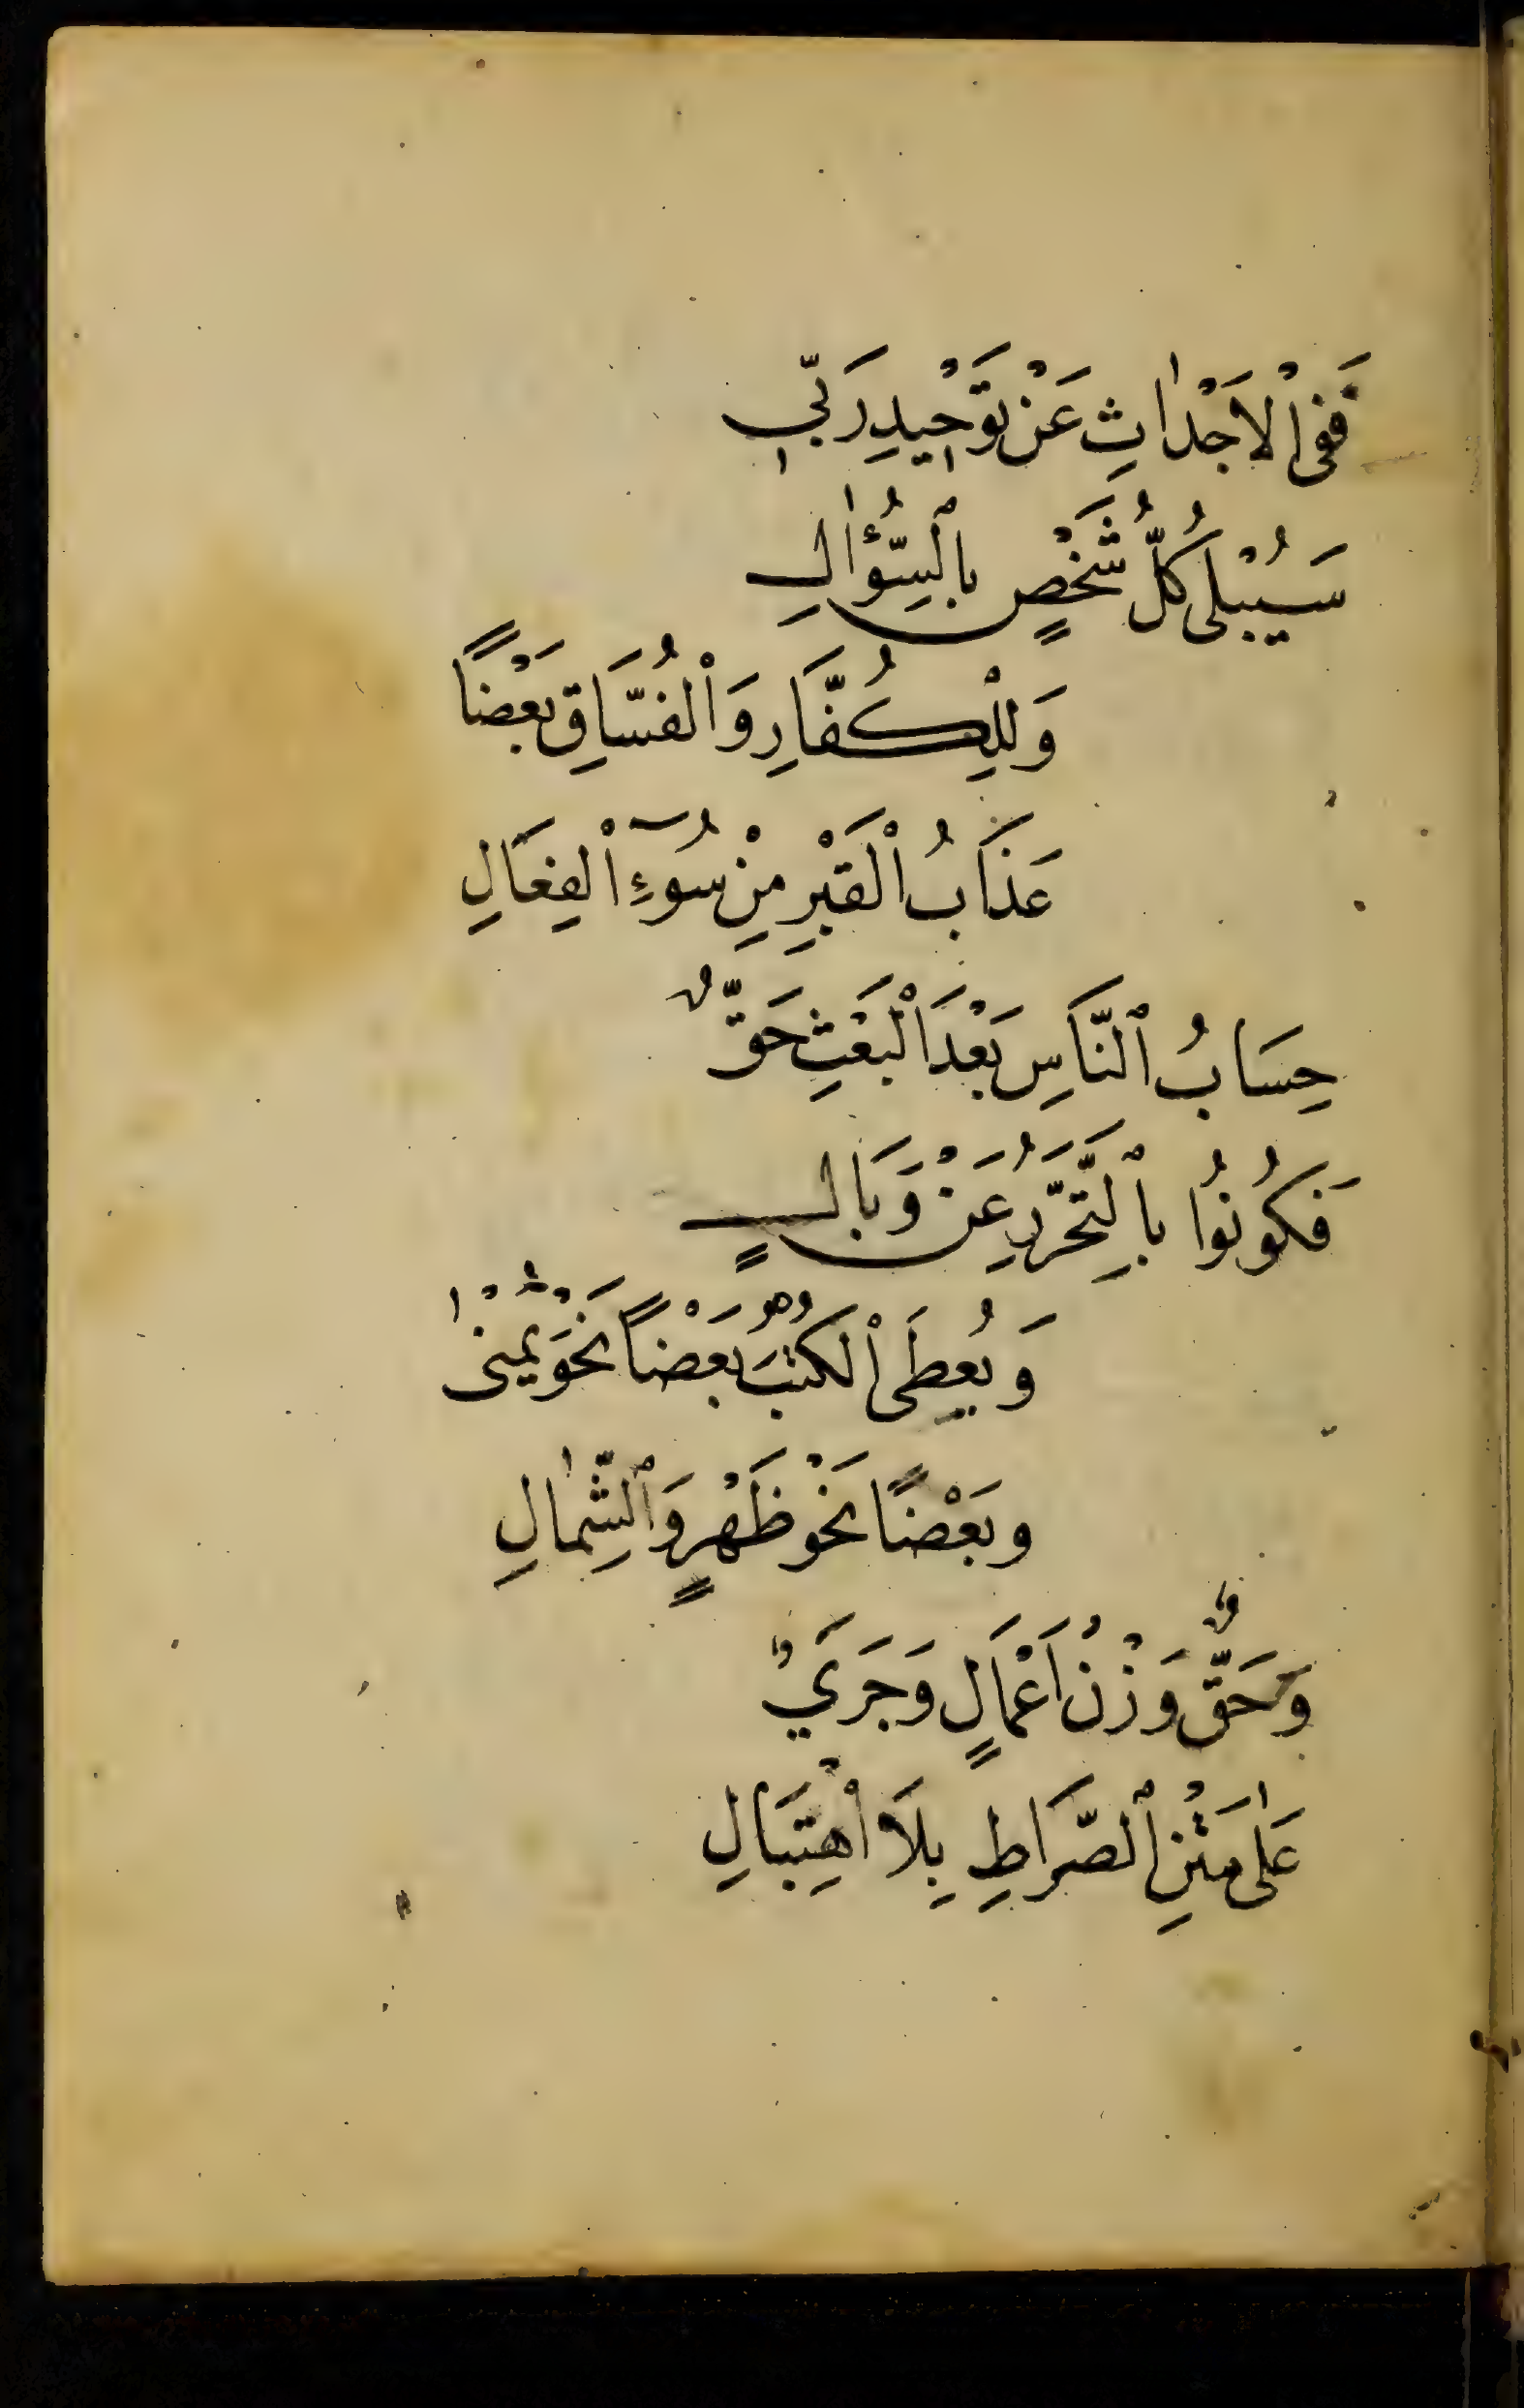 فَفِى ٱلْاَجْدٰاثِ عَنْ تَوْحٖيدِ رَبّٖي
سَيُبْلٰى كُلُّ شَخْصٍ بِٱلسُّؤٰالِ
وَلِلْكُفَّارِ وَٱلْفُسَّاقِ بَعْضًا
عَذَابُ ٱلْقَبْرِ مِنْ سُوٓءِ ٱلْفِعَالِ
حِسَابُ ٱلنَّاسِ بَعْدَ ٱلْبَعْثِ حَقٌّ
فَكُونُوا بِٱلتَّحَرُّزِ عَنْ وَبَالٍ
وَيُعْطَى ٱلْكُتْبُ بَعْضًا نَحْوَ يُمْنٰى
وبَعْضًا نَحْوَ ظَهْرٍ وَٱلشِّمٰالِ
وَحَقٌّ وَزْنُ اَعْمَالٍ وَجَرَىٌ
عَلٰى مَتْنِ ٱلصِّرَاطِ بِلَا ٱهْتِبَالِ